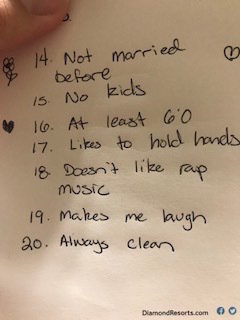 14. Not married
before
15. No kids
16. At least 6'0
17. Likes to hold hands
18. Doesn't like rap
music
19. Makes me laugh
20. Always clean
DiamondResorts.com